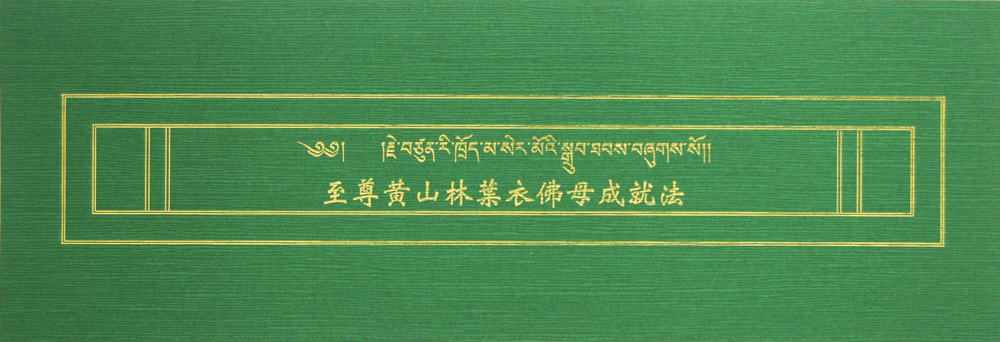 ༄༅། །རྗེ་བཙུན་རི་ཁྲོད་མ་སེར་མོའི་སྒྲུབ་ཐབས་བཞུགས་སོ།།
至尊黃山林葉衣佛母成就法